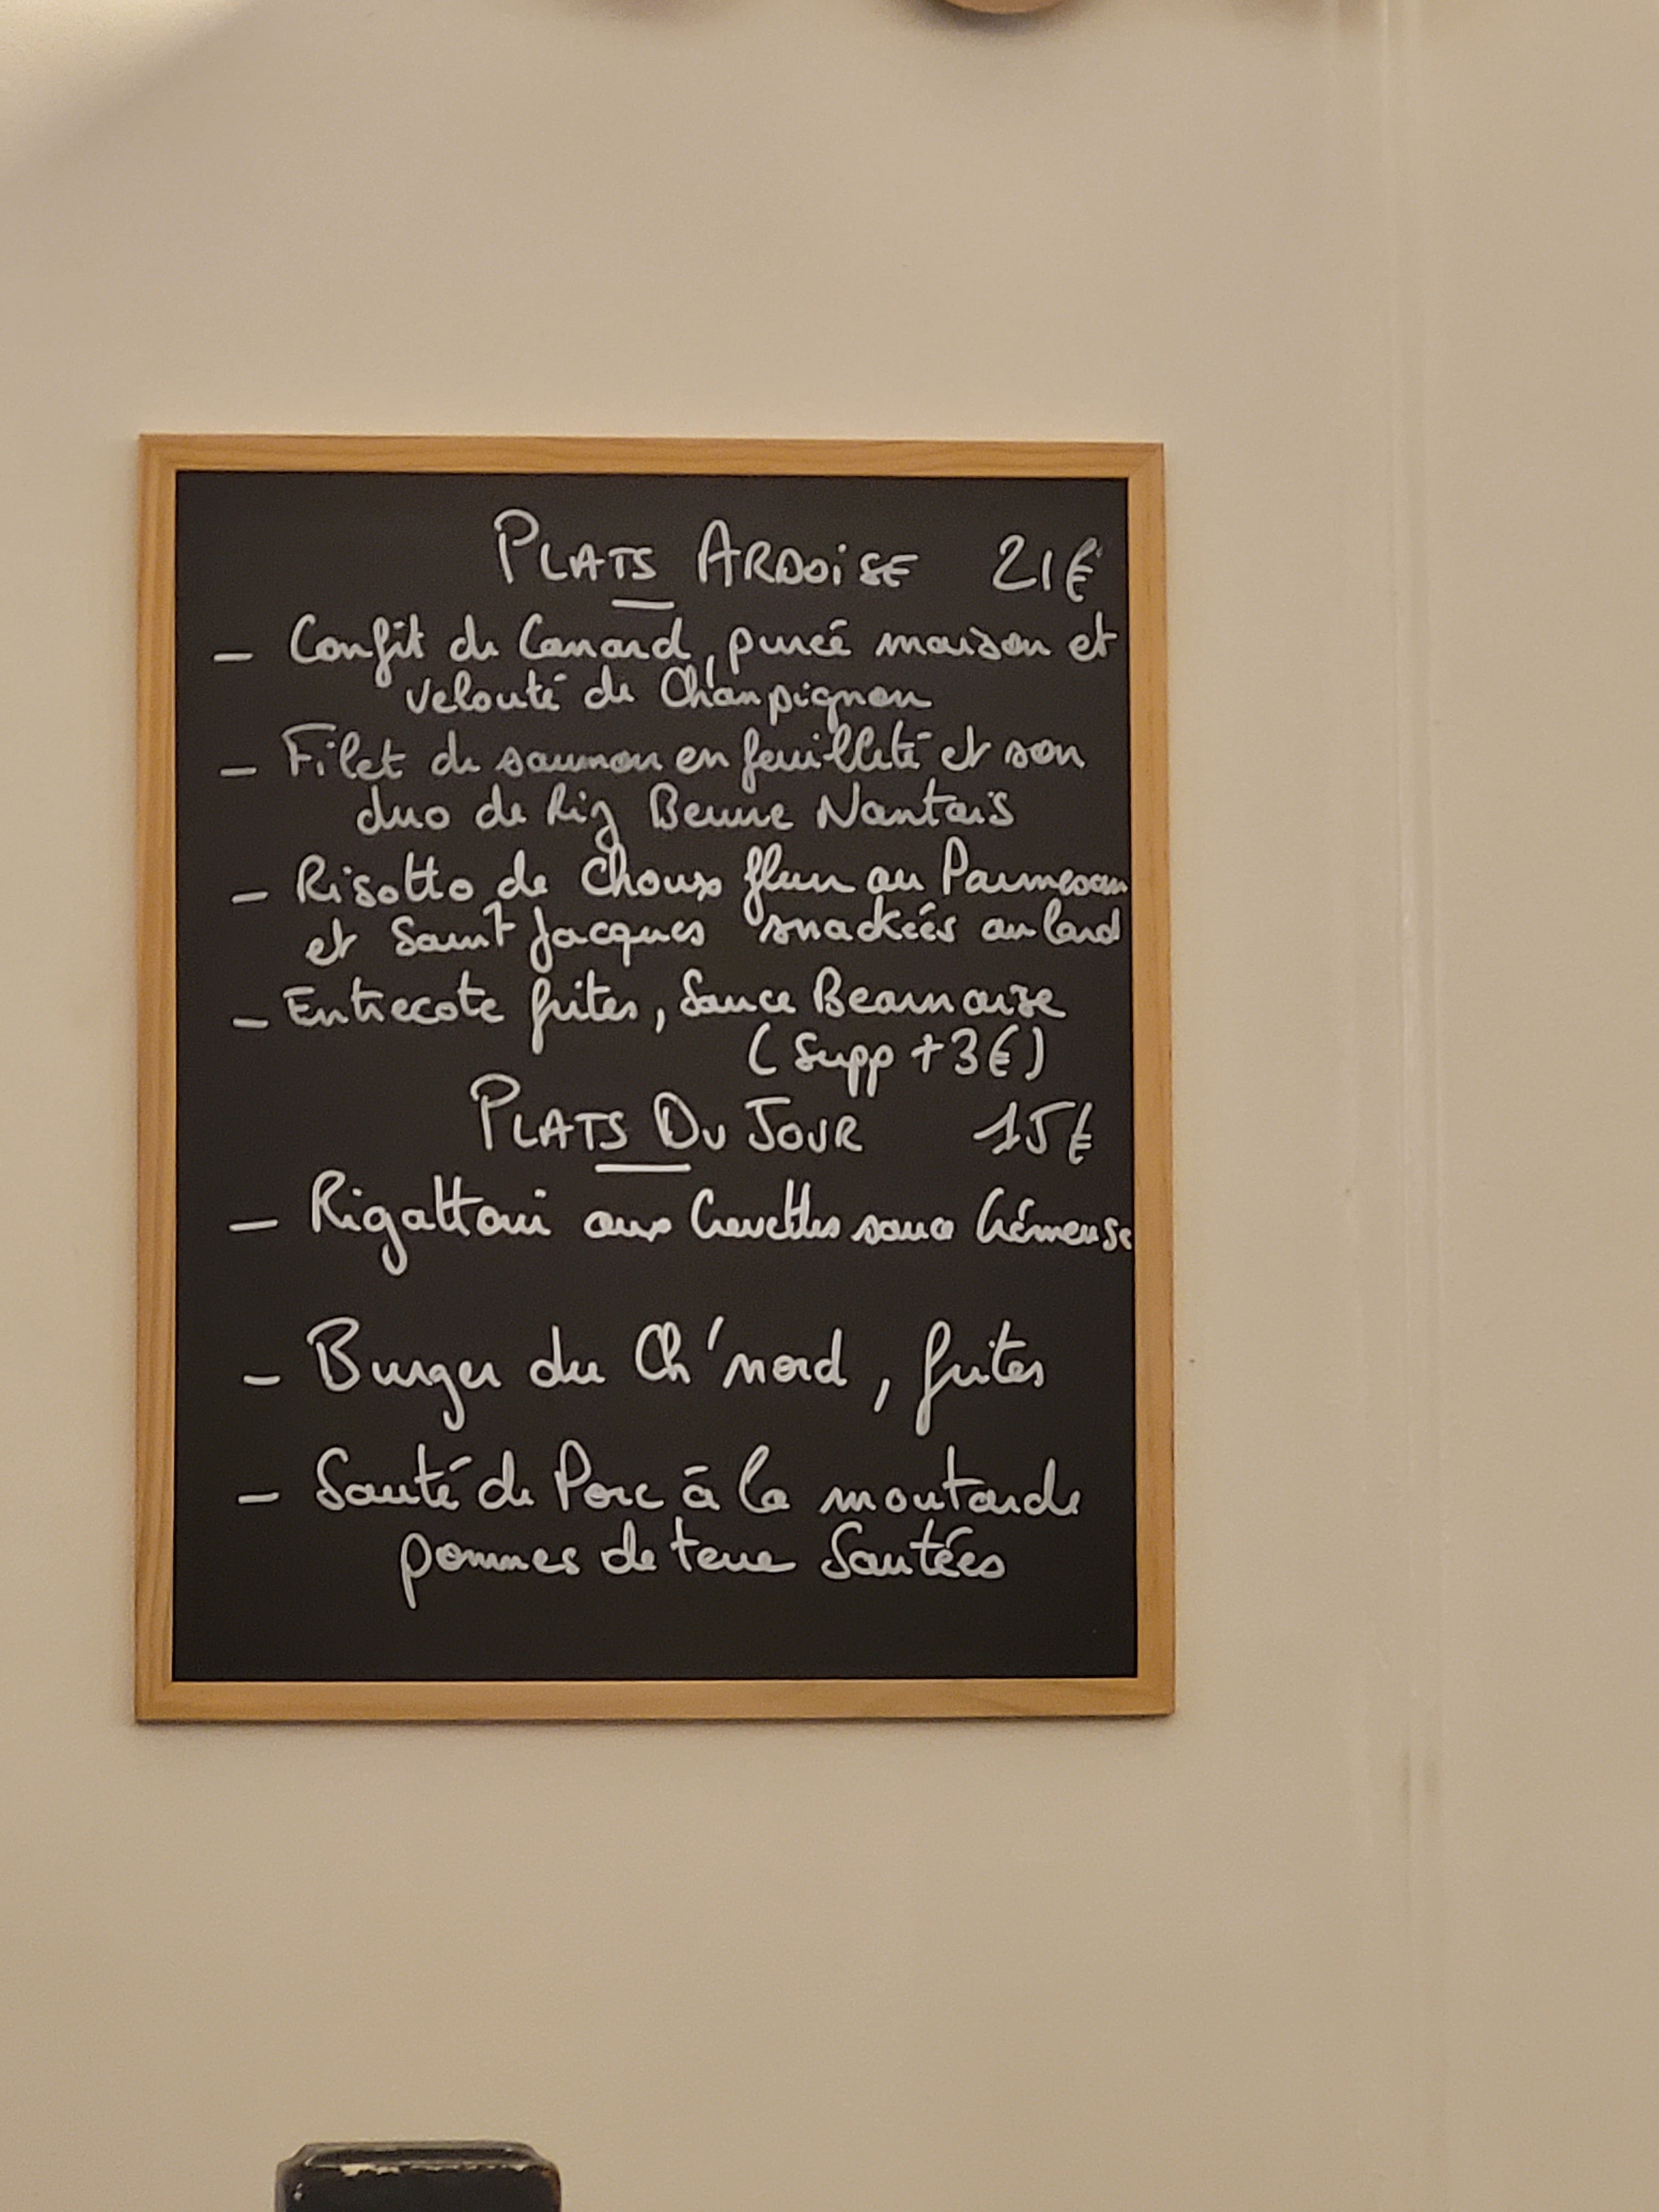 PLATS ARDOISE 21€
- Confit de Canard, purée maison et
velouté de Champignon
- Filet de saumon en feuilleté et son
duo de Riz Beurre Nantais
- Risotto de Choux fleur au Parmesan
et Saint Jacques snackées au lard
- Entrecote frites, Sauce Bearnaise
(Supp +3€)
PLATS DU JOUR 15€
- Rigattoni aux Crevettes sauce Crémeuse
- Burger du Ch'nord, frites
- Sauté de Porc à la moutarde
pommes de terre Sautées